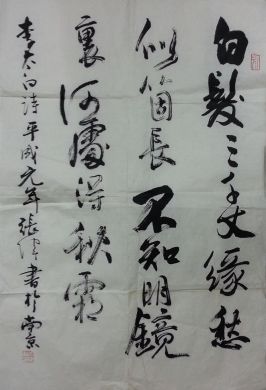 白髮三千丈緣愁
似箇長不知明鏡
裏何處得秋霜
李太白詩平成元年張津書於東京